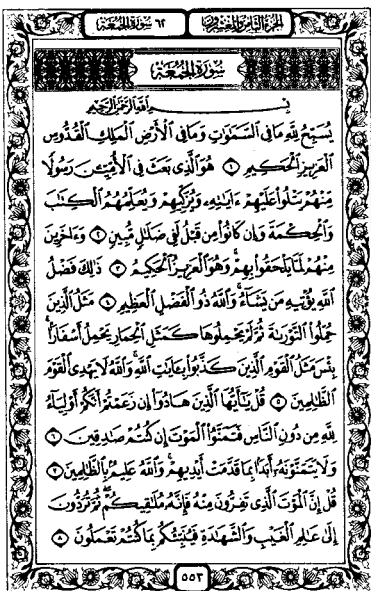 الجزء الثامن والعشرون ٦٢ سورة الجمعة
سورة الجمعة
بسم الله الرحمن الرحيم
يُسَبِّحُ لِلَّهِ مَا فِى السَّمَٰوَٰتِ وَمَا فِى الْأَرْضِ الْمَلِكِ الْقُدُّوسِ
الْعَزِيزِ الْحَكِيمِ ١ هُوَ الَّذِى بَعَثَ فِى الْأُمِّيِّـۧنَ رَسُولًا
مِّنْهُمْ يَتْلُوا۟ عَلَيْهِمْ ءَايَٰتِهِۦ وَيُزَكِّيهِمْ وَيُعَلِّمُهُمُ الْكِتَٰبَ
وَالْحِكْمَةَ وَإِن كَانُوا۟ مِن قَبْلُ لَفِى ضَلَٰلٍ مُّبِينٍ ٢ وَءَاخَرِينَ
مِنْهُمْ لَمَّا يَلْحَقُوا۟ بِهِمْ وَهُوَ الْعَزِيزُ الْحَكِيمُ ٣ ذَٰلِكَ فَضْلُ
اللَّهِ يُؤْتِيهِ مَن يَشَآءُ وَاللَّهُ ذُو الْفَضْلِ الْعَظِيمِ ٤ مَثَلُ الَّذِينَ
حُمِّلُوا۟ التَّوْرَىٰةَ ثُمَّ لَمْ يَحْمِلُوهَا كَمَثَلِ الْحِمَارِ يَحْمِلُ أَسْفَارًۢا
بِئْسَ مَثَلُ الْقَوْمِ الَّذِينَ كَذَّبُوا۟ بِـَٔايَٰتِ اللَّهِ وَاللَّهُ لَا يَهْدِى الْقَوْمَ
الظَّٰلِمِينَ ٥ قُلْ يَٰٓأَيُّهَا الَّذِينَ هَادُوٓا۟ إِن زَعَمْتُمْ أَنَّكُمْ أَوْلِيَآءُ
لِلَّهِ مِن دُونِ النَّاسِ فَتَمَنَّوُا۟ الْمَوْتَ إِن كُنتُمْ صَٰدِقِينَ ٦
وَلَا يَتَمَنَّوْنَهُۥٓ أَبَدًۢا بِمَا قَدَّمَتْ أَيْدِيهِمْ وَاللَّهُ عَلِيمٌۢ بِالظَّٰلِمِينَ ٧
قُلْ إِنَّ الْمَوْتَ الَّذِى تَفِرُّونَ مِنْهُ فَإِنَّهُۥ مُلَٰقِيكُمْ ثُمَّ تُرَدُّونَ
إِلَىٰ عَٰلِمِ الْغَيْبِ وَالشَّهَٰدَةِ فَيُنَبِّئُكُم بِمَا كُنتُمْ تَعْمَلُونَ ٨
٥٥٣